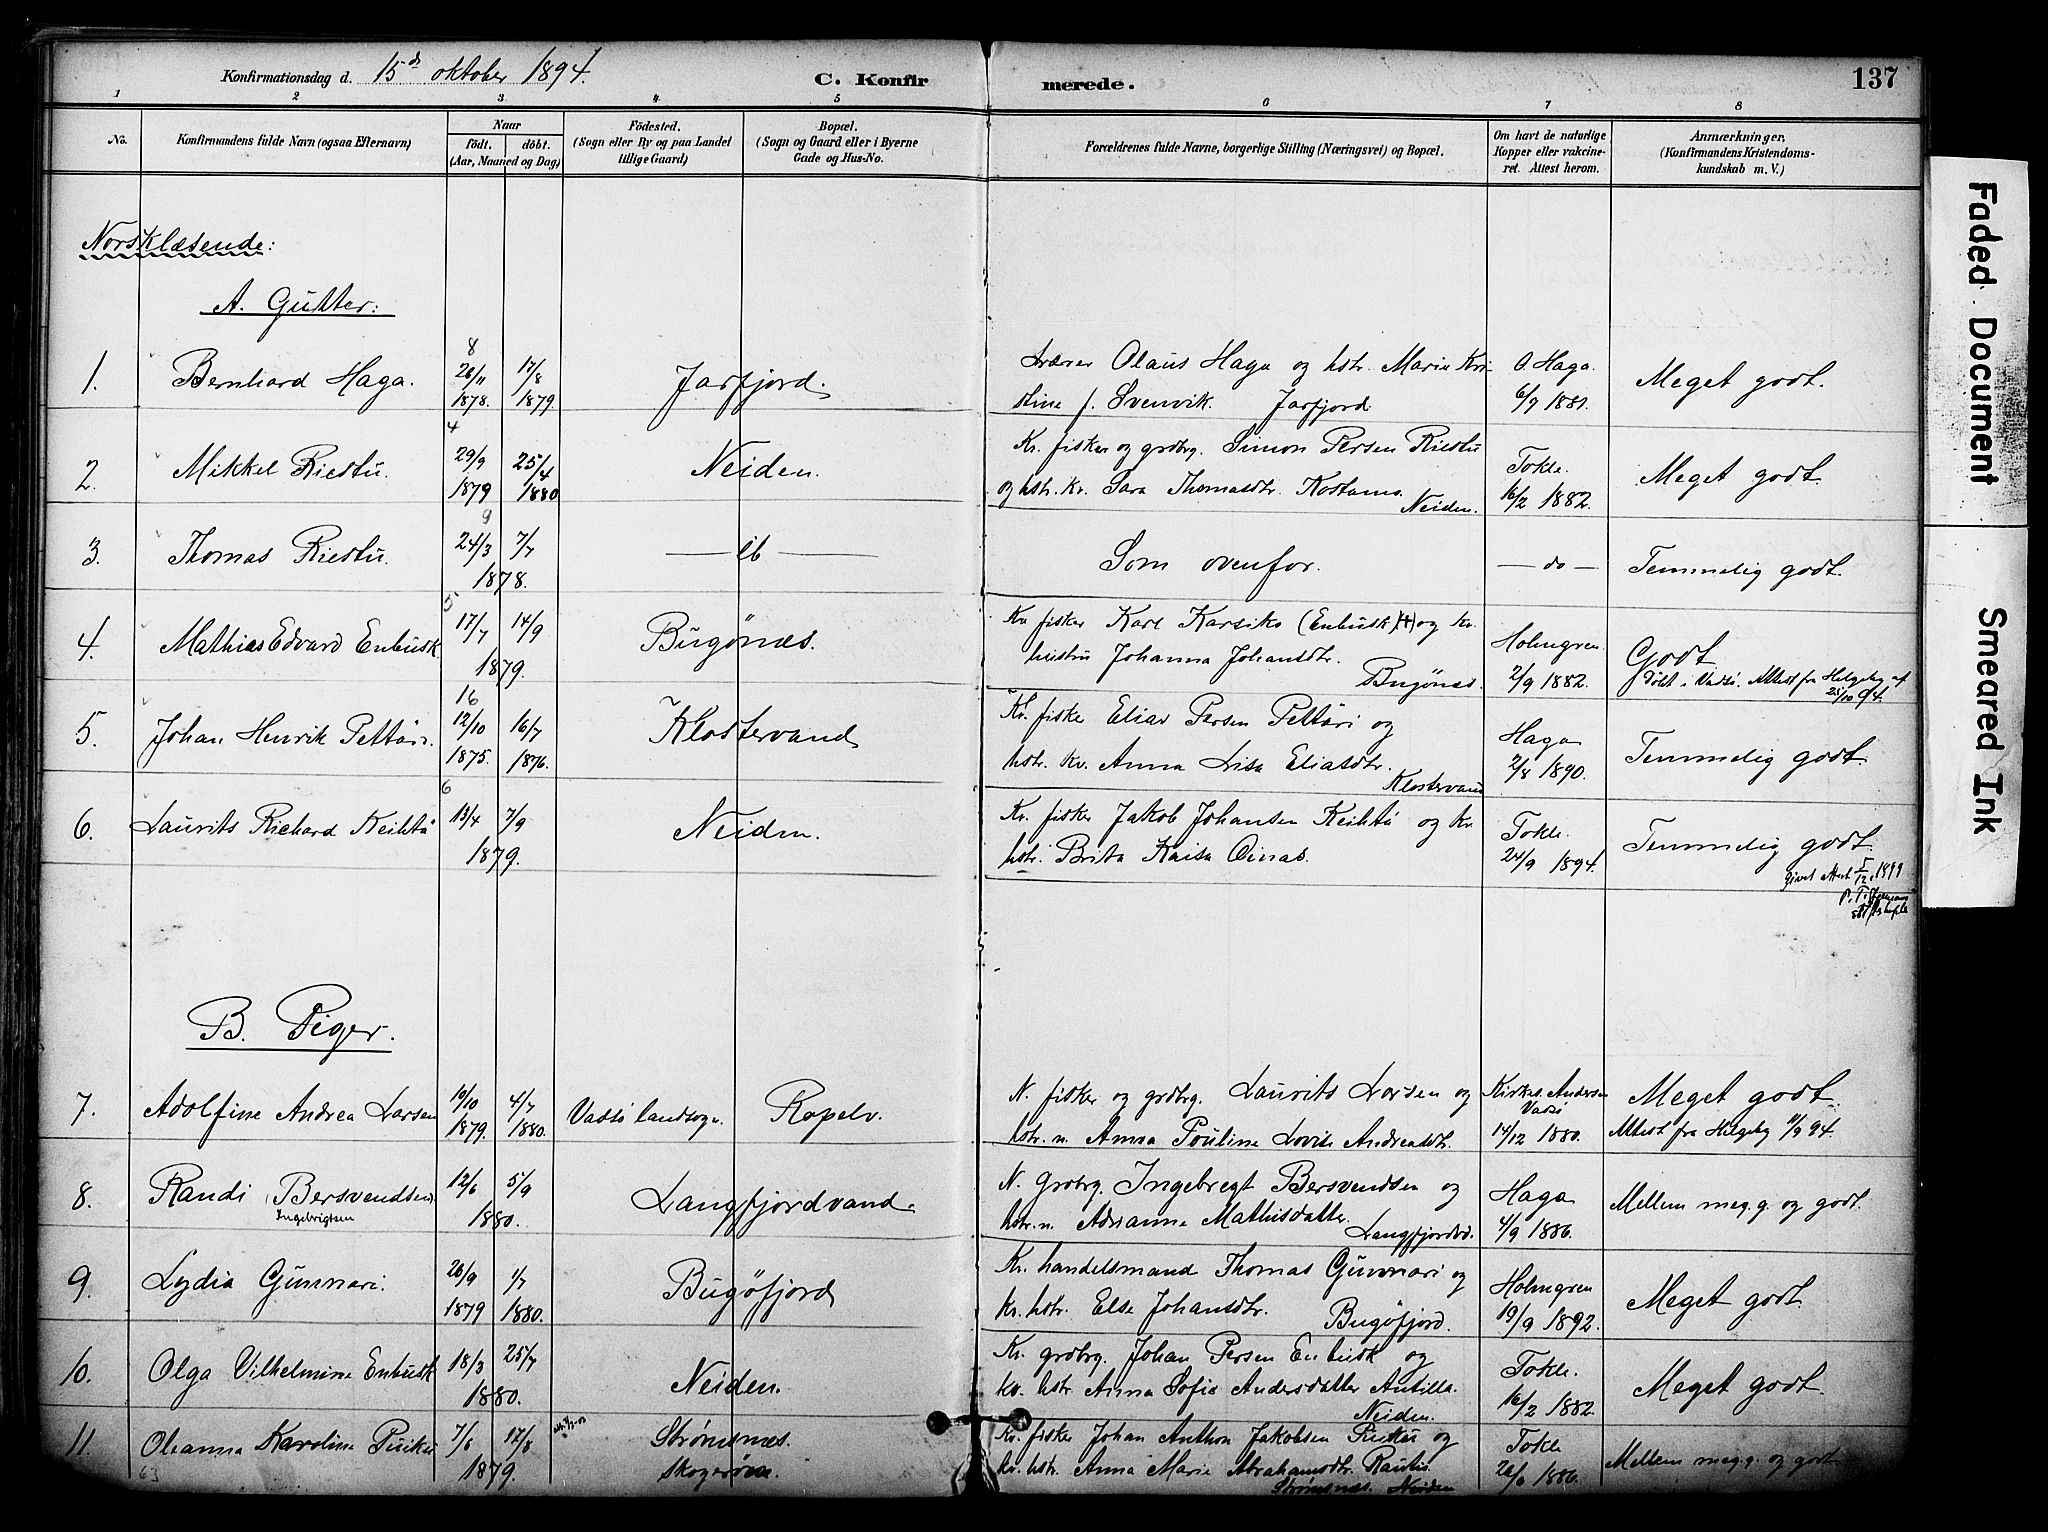 Konfirmationsdag d. 15de oktober 1894. C. Konfirmerede. 137
1 2 3 4 5 6 7 8
No. Konfirmandens fulde Navn (ogsaa Efternavn) Naar født. døbt. (Aar, Maaned og Dag) Fødested. (Sogn eller By og paa Landet tillige Gaard) Bopæl. (Sogn og Gaard eller i Byerne Gade og Hus-No. Forældrenes fulde Navne, borgerlige Stilling (Næringsvei) og Bopæl. Om havt de naturlige Kopper eller vakcineret. Attest herom. Anmærkninger, (Konfirmandens Kristendomskundskab m. V.)
Norsklæsende:
A. Gutter:
1. Bernhard Haga. 8 26/11 1878. 17/8 1879. Jarfjord. Lærer Olaus Haga og hstr. Marie Kri-
stine f. Svenvik. Jarfjord O. Haga. 6/7 1881. Meget godt.
2. Mikkel Riestü. 4 29/9 1879 25/4 1880 Neiden. Kv. fisker og grdbrg. Simon Persen Riestü
og hstr. kv. Sara Thomasdtr. Kostamo. Neiden. Tokle. 16/2 1882. Meget godt.
3. Thomas Riestü. 9 24/3 7/7 1878. — ib — Som ovenfor. — do — Temmelig godt.
4. Mathias Edvard Enbusk. 5 17/7 14/9 1879. Bugönæs. Kv. fisker Karl Karsiko (Enbusk) og kv.
hustru Johanna Johansdtr. Bugönæs. Holmgren. 2/9 1882. Godt
Döbt i Vadsö. Attest fra Helgeby af 25/10 94.
5. Johan Henrik Pettäri. 16 12/10 1875. 16/7 1876. Klostervand Kv. fisker Elias Persen Pettäri og
hstr. kv. Anna Lisa Eliasdtr. Klostervand Haga 2/8 1890. Temmelig godt.
6. Laurits Richard Keihtö 6 13/4 7/9 1879. Neiden. Kv. fisker Jakob Johansen Keihtö og kv.
hstr. Brita Kaisa Oinas. Tokle. 24/9 1894. Temmelig godt.
givet attest 5/12 1899
B. Piger.
7. Adolfine Andrea Larsen 10/10 1879. 4/7 1880. Vadsö landsogn. Ropelv. N. fisker og grdbrg. Laurits Larsen og
hstr. n. Anna Pouline Lovise Andreasdtr. Kirkes. Andersen Vadsö 14/12 1880. Meget godt.
Attest fra Helgeby 11/9 94.
8. Randi Bersvendsen Ingebrigtsen 12/6 5/9 1880. Langfjordvand. N. grdbrg. Ingebregt Bersvendsen og
hstr. n. Adrianna Mathisdatter. Langfjordvd. Haga 4/9 1886. Mellem meg. g. og godt.
9. Lydia Gunnari. 26/9 1879 1/7 1880. Bugöfjord Kv. handelsmand Thomas Gunnari og
kv. hstr. Else Johansdtr. Bugöfjord. Holmgren 19/9 1892. Meget godt
10. Olga Vilhelmine Enbusk 18/3 25/7 1880. Neiden. Kv. grdbrg. Johan Persen Enbusk og
kv. hstr. Anna Sofie Andersdatter Antilla. Neiden. Tokle. 16/2 1882. Meget godt.
11. Oleanna Karoline Puiku 7/6 17/8 1879. Strømsnæs. Skogerøen. Kv. fisker Johan Anthon Jakobsen Puiku og
kv. hstr. Anna Marie Abrahamsdtr. Rautio. Strömsnæs. Neiden Tokle 1886. Mellem meg. g. og godt.
63
Faded Document
Smeared Ink